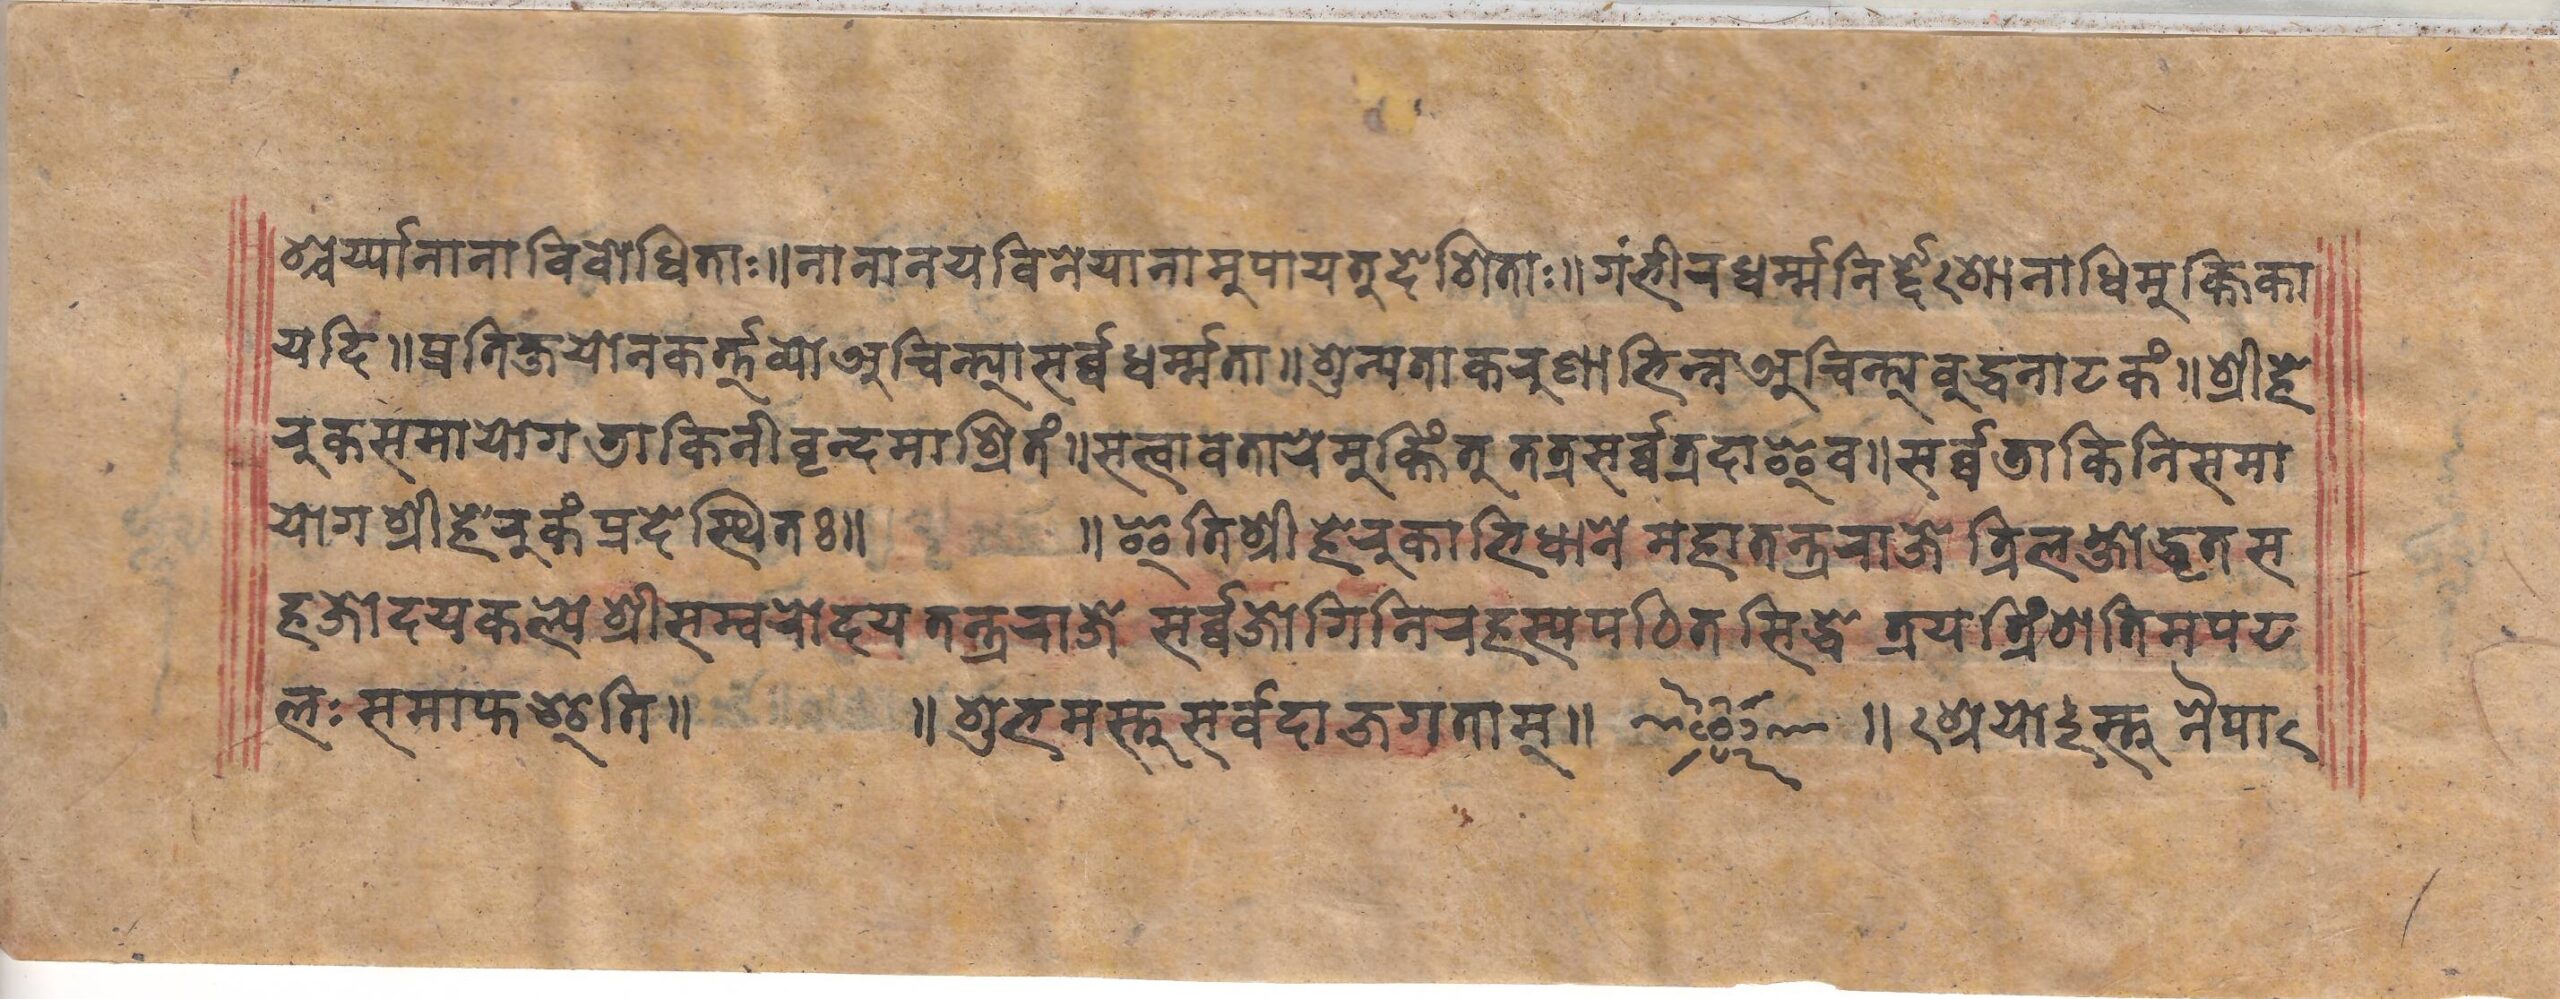 श्चर्य्यानानाविबोधिताः॥नानानयविनेयानामुपायतुदेशिताः॥गंभीरधर्म्मनिर्द्देशेनाधिमुक्तिका
यदि॥प्रतिक्षयोनकर्त्तव्योअचिन्त्यासर्व्वधर्म्मता॥शून्यताकरुणाभिन्नअचिन्त्यबुद्धनाटकं॥श्रीहे
रुकसमायोगडाकिनीवृन्दमाश्रितं॥सत्वावतारेमुक्तिंतु तत्रसर्व्वत्रदाएव॥सर्व्वडाकिनिसमा
योगश्रीहेरुकंप्रदेस्थितः॥ ॥इतिश्रीहेरुकाभिधाने महातन्त्रराजे त्रिलक्षोद्धृतस
हजोदयकल्पे श्रीसम्वरोदयतन्त्रराजे सर्व्वजोगिनिरहस्यपठितसिद्धे त्रयत्रिंशतिमपट
लः समाप्त इति॥ ॥शुभमस्तु सर्वदाजगताम्॥ ॥श्रेयोऽस्तु नैपाल